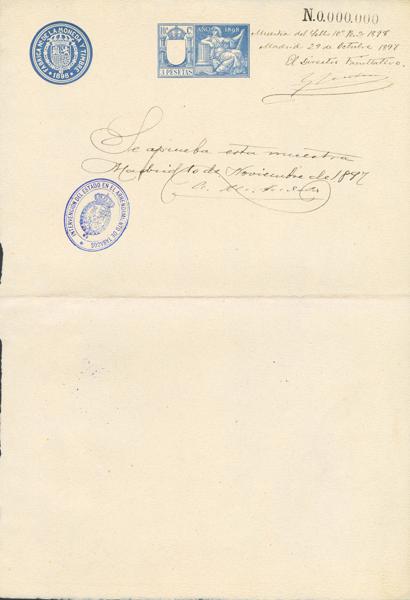 FABRICA N. DE LA MONEDA Y TIMBRE
1898
10ª C.
AÑO 1898
3 PESETAS
N.0,000,000
Muestra del Sello 10º 1898
Madrid 29 de Octubre 1897
El Director Facultativo.
Se aprueba esta muestra
Madrid 10 de Noviembre de 1897
INTERVENCIÓN DEL ESTADO EN EL ARRENDAMIENTO DE TABACOS